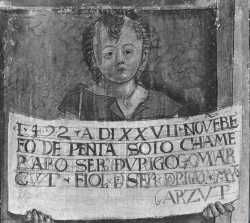 1492 · A DI XXVII · NOVEBRE
FO DE PENTA SOTO CHAME
RARO SER DVRIGO GO MAR
CVT · FIOL D SER DRIGO · MA
ARZVT